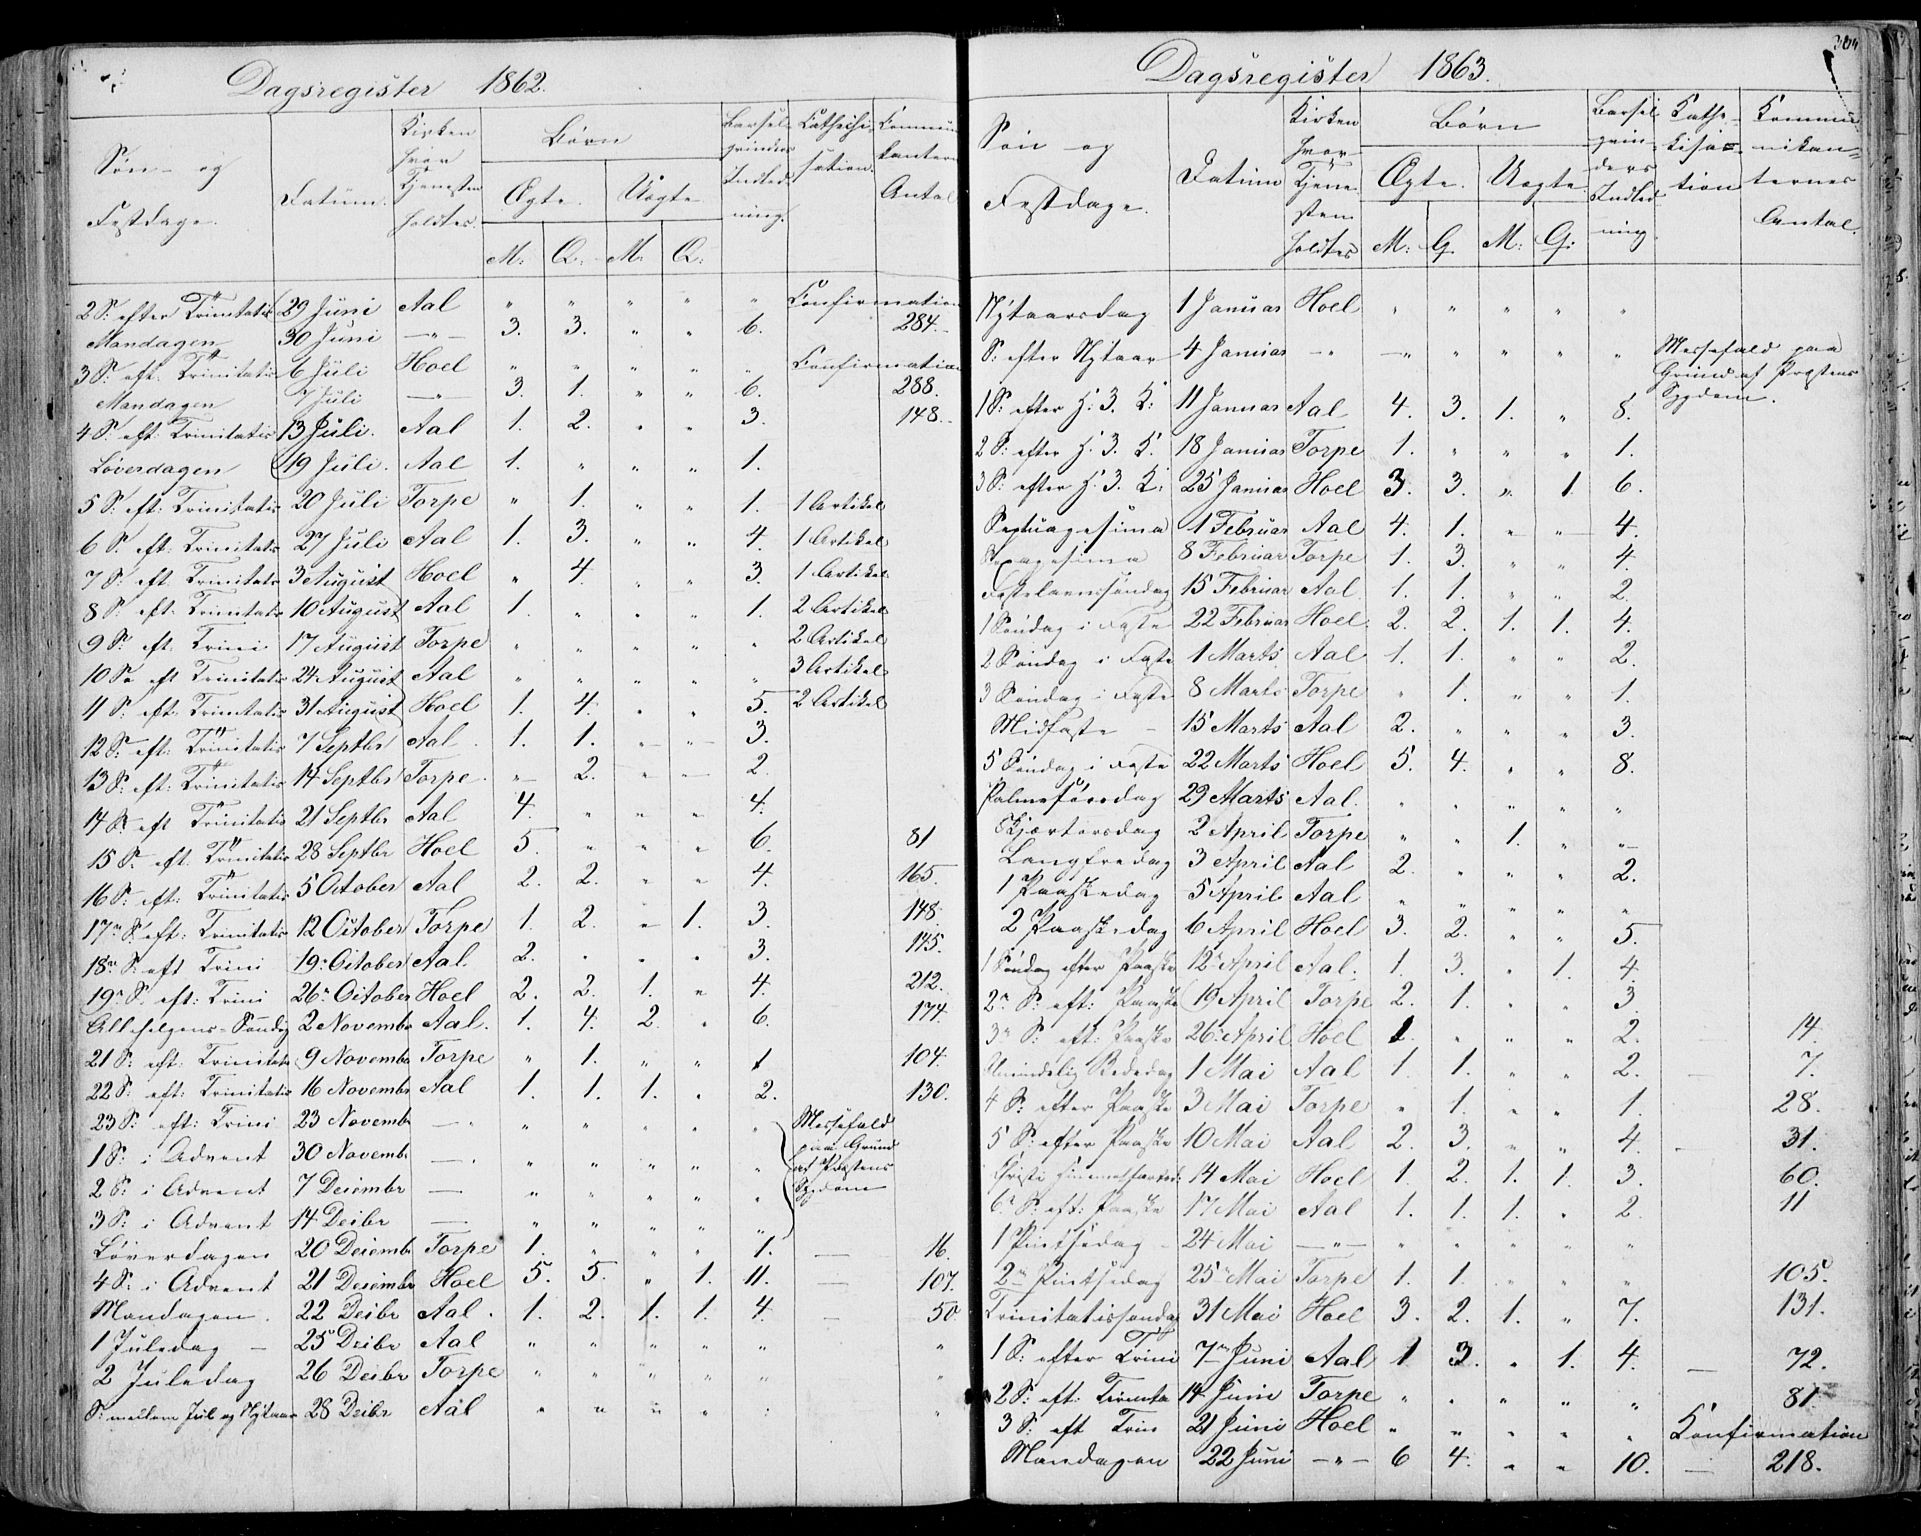 Dagsregister 1862.
Søn- og Festdage. | Datum. | Kirken hvor Tjenesten holdtes. | Børn | Barselqvinders Indledning. | Cathechisation. | Communikanternes Antal
Ægte. | Uægte
M: | Q: | M: | Q:
2 S: efter Trinitatis | 29 Juni | Aal | " | " | " | " | " | Confirmation
Mandagen | 30 Juni | —"— | 3. | 3. | " | " | 6. | 284.
3 S: eft. Trinitatis | 6 Juli | Hoel | " | " | " | " | " | Confirmation
Mandagen | 7 Juli | —"— | 3. | 1. | " | " | 6. | 288.
4 S: eft: Trinitatis | 13 Juli. | Aal | 1. | 2. | " | " | 3. | 148.
Løverdagen | 19 Juli. | Aal | 1. | " | " | " | 1.
5 S: eft: Trinitatis | 20 Juli | Torpe | " | 1. | " | " | 1. | 1 Artikel
6 S: eft: Trinitatis | 27 Juli | Aal | 1. | 3. | " | " | 4. | 1 Artikel
7 S: eft. Trinitatis | 3 August | Hoel | " | 4. | " | " | 3. | 1 Artikel
8 S: eft: Trinitatis | 10 August | Aal | 1. | " | " | " | 1. | 2 Artikel
9 S: eft. Trini | 17 August | Torpe | " | " | " | " | " | 2 Artikel
10 S: eft Trinitatis | 24 August | Aal | " | " | " | " | " | 3 Artikel
11 S: eft. Trinitatis | 31 August | Hoel | 1. | 4. | " | " | 5. | 2 Artikel
12 S: eft: Trinitatis | 7 Septbr | Aal | 1. | 1. | " | " | 3.
13 S: eft: Trinitatis | 14 Septbr | Torpe | " | 2. | " | " | 2.
14 S: eft Trinitatis | 21 Septbr | Aal | 4. | " | " | " | 4.
15 S: eft. Trinitatis | 28 Septbr | Hoel | 5. | " | " | " | 6. | 81
16 S: eft: Trinitatis | 5 October | Aal | 2. | 2. | " | " | 4. | 165.
17n S: eft: Trinitatis | 12 October | Torpe | 1. | 2. | " | 1. | 3. | 148
18n S: eft Trini | 19n October | Aal. | 2. | " | " | " | 3. | 145.
19n S. eft: Trini | 26n October | Hoel | 2. | 2. | 1. | " | 4. | 212.
Allehelgens-Søndag | 2 Novembr | Aal. | 1. | 4. | 2. | " | 6. | 174.
21 S: eft. Trinitatis | 9 Novembr | Torpe | " | 1. | " | " | 1 | 104.
22 S: eft: Trinitatis | 16 Novembr | Aal | 1. | 1. | 1. | " | 2. | 130.
23 S: eft: Trini | 23 Novembr | —"— | " | " | " | " | " | Messefald
1 S: i Advent | 30 Novembr | —"— | " | " | " | " | " | paa Grund
2 S: i Advent | 7 Decembr | — | " | " | " | " | " | af Præstens
3 S: i Advent | 14 Decbr | — | " | " | " | " | " | Sygdom
Løverdagen | 20 Decembr | Torpe | 1. | " | " | " | 1. | — | 16.
4 S: i Advent | 21 Decembr | Hoel | 5. | 5. | " | 1. | 11. | — | 107.
Mandagen. | 22 Decbr | Aal. | 1. | 2. | 1. | 1. | 4. | — | 50
1 Juledag — | 25 Decbr | Aal | " | " | " | " | " | "
2 Juledag | 26 Decbr | Torpe | " | " | " | " | " | "
S: mellem Jul og Nytaar | 28 Decbr | Aal | " | " | " | " | : | "
Dagsregister 1863.
Søn og Festdage. | Datum | Kirken hvor Tjenesten holdtes | Børn | Barselqvinders Indledning. | Kathekisation | Kommunikanternes Antal.
Ægte. | Uægte.
M: | G. | M: | G:
Nytaarsdag | 1 Januar | Hoel | " | " | " | " | "
S: efter Nytaar | 4 Januar | —"— | " | " | " | " | " | Messefald paa Grund af Præstens Sygdom.
1 S: efter H. 3. K: | 11 Januar | Aal | 4. | 3. | 1. | " | 8.
2 S: efter H. 3. K. | 18 Januar | Torpe | 1. | " | " | " | 1.
3 S: efter H. 3. K: | 25 Januar | Hoel | 3. | 3. | " | 1. | 6.
Septuagesima | 1 Februar | Aal | 4. | 1. | " | " | 4.
Sexagesima | 8 Februar | Torpe | 1. | 3. | " | " | 4.
Fastelavnssøndag | 15 Februar | Aal. | 1. | 1. | " | " | 2.
1 Søndag i Faste | 22 Februar | Hoel. | 2. | 2. | 1. | 1. | 4.
2 Søndag i Faste | 1 Marts | Aal | 1. | 1. | " | " | 2.
3 Søndag i Faste | 8 Marts | Torpe | " | 1. | " | " | 1.
Midfaste — | 15 Marts | Aal | 2. | " | " | " | 3.
5 Søndag i Faste | 22 Marts | Hoel | 5. | 4. | " | " | 8.
Palmesøndag | 29 Marts | Aal. | " | " | " | " | "
Skjærtorsdag | 2 April | Torpe | " | " | 1. | " | "
Langfredag | 3 April | Aal | 2. | " | " | " | 2.
1 Paaskedag | 5 April | Aal | " | " | " | " | "
2 Paaskedag | 6 April | Hoel | 3. | 2. | " | " | 5.
1 Søndag efter Paaske | 12n April | Aal. | 1. | 3. | " | 1. | 4.
2n S: eft: Paaske | 19 April | Torpe | 2. | 1. | " | " | 3.
3n S: eft: Paaske | 26n April | Hoel | 1. | " | " | " | 2. | 14.
Almindelig Bededag | 1 Mai | Aal | 1. | 1. | " | " | 2. | — | 7.
4 S: efter Paaske | 3 Mai | Torpe | " | 1. | " | " | 1. | 28.
5 S: efter Paaske | 10 Mai | Aal | 2. | 3. | " | " | 4. | — | 31.
Christi Himmelfartsd: | 14 Mai | Hoel | 1. | 2. | 1. | 1. | 3. | 60.
6n S: eft: Paaske | 17 Mai | Aal | 1. | 1. | 1. | " | 2. | 11
1 Pintsedag — | 24 Mai | —"— | " | " | " | " | "
2n Pintsedag | 25n Mai | Torpe | 1. | 1. | " | " | " | 105.
Trinitatissøndag | 31 Mai | Hoel | 3. | 2. | 1. | " | 7. | 131.
1 S: efter Trini | 7n Juni | Aal | 1 | 3. | " | 1. | 4. | — | 72.
2 S: eft: Trinita | 14 Juni | Torpe | " | " | " | " | " | 81.
3 S: eft Trin | 21 Juni | Hoel | " | " | " | " | " | Konfirmation
Mandagen | 22 Juni | —"— | 6 | 4. | " | " | 10. | — | 218.